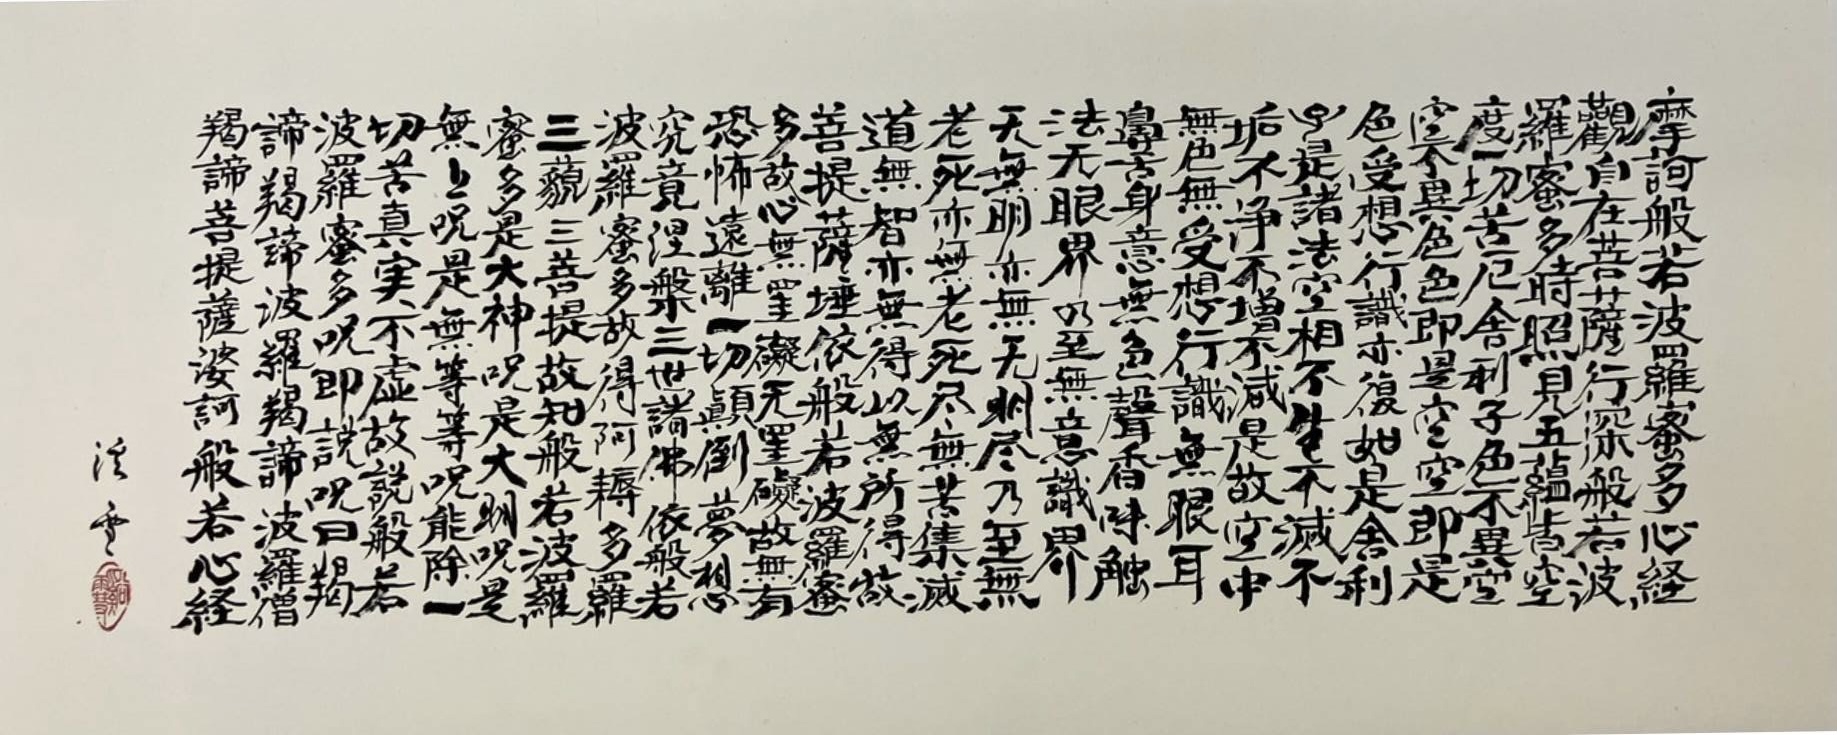 摩訶般若波羅蜜多心経
觀自在菩薩行深般若波
羅蜜多時照見五蘊皆空
度一切苦厄舎利子色不異空
空不異色色即是空空即是
色受想行識亦復如是舎利
子是諸法空相不生不滅不
垢不浄不増不減是故空中
無色無受想行識無眼耳
鼻舌身意無色聲香味触
法无眼界乃至無意識界
无無明亦無无明尽乃至無
老死亦無老死尽無苦集滅
道無智亦無得以無所得故
菩提薩埵依般若波羅蜜
多故心無罣礙无罣礙故無有
恐怖遠離一切顛倒夢想
究竟涅槃三世諸佛依般若
波羅蜜多故得阿耨多羅
三藐三菩提故知般若波羅
蜜多是大神呪是大明呪是
無上呪是無等等呪能除一
切苦真実不虚故説般若
波羅蜜多呪即説呪曰羯
諦羯諦波羅羯諦波羅僧
羯諦菩提薩婆訶般若心経
渓雪